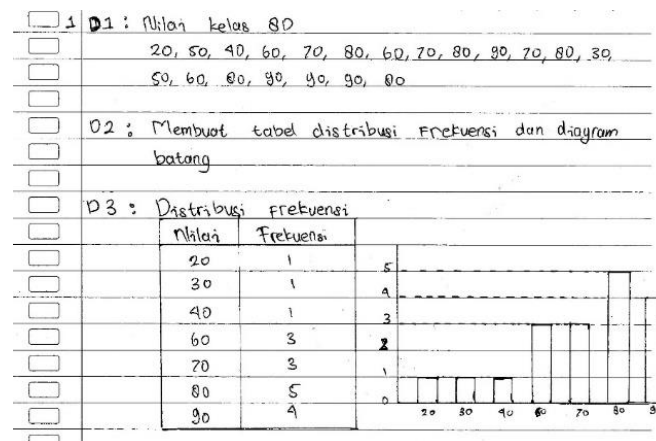 1 D1: Nilai kelas 8D
20, 50, 40, 60, 70, 80, 60, 70, 80, 90, 70, 80, 30,
50, 60, 80, 90, 90, 90, 80
D2: Membuat tabel distribusi Frekuensi dan diagram
batang
D3: Distribusi Frekuensi
Nilai Frekuensi
20 1
30 1
40 1
60 3
70 3
80 5
90 4
5
4
3
2
1
0
20 30 40 60 70 80 9